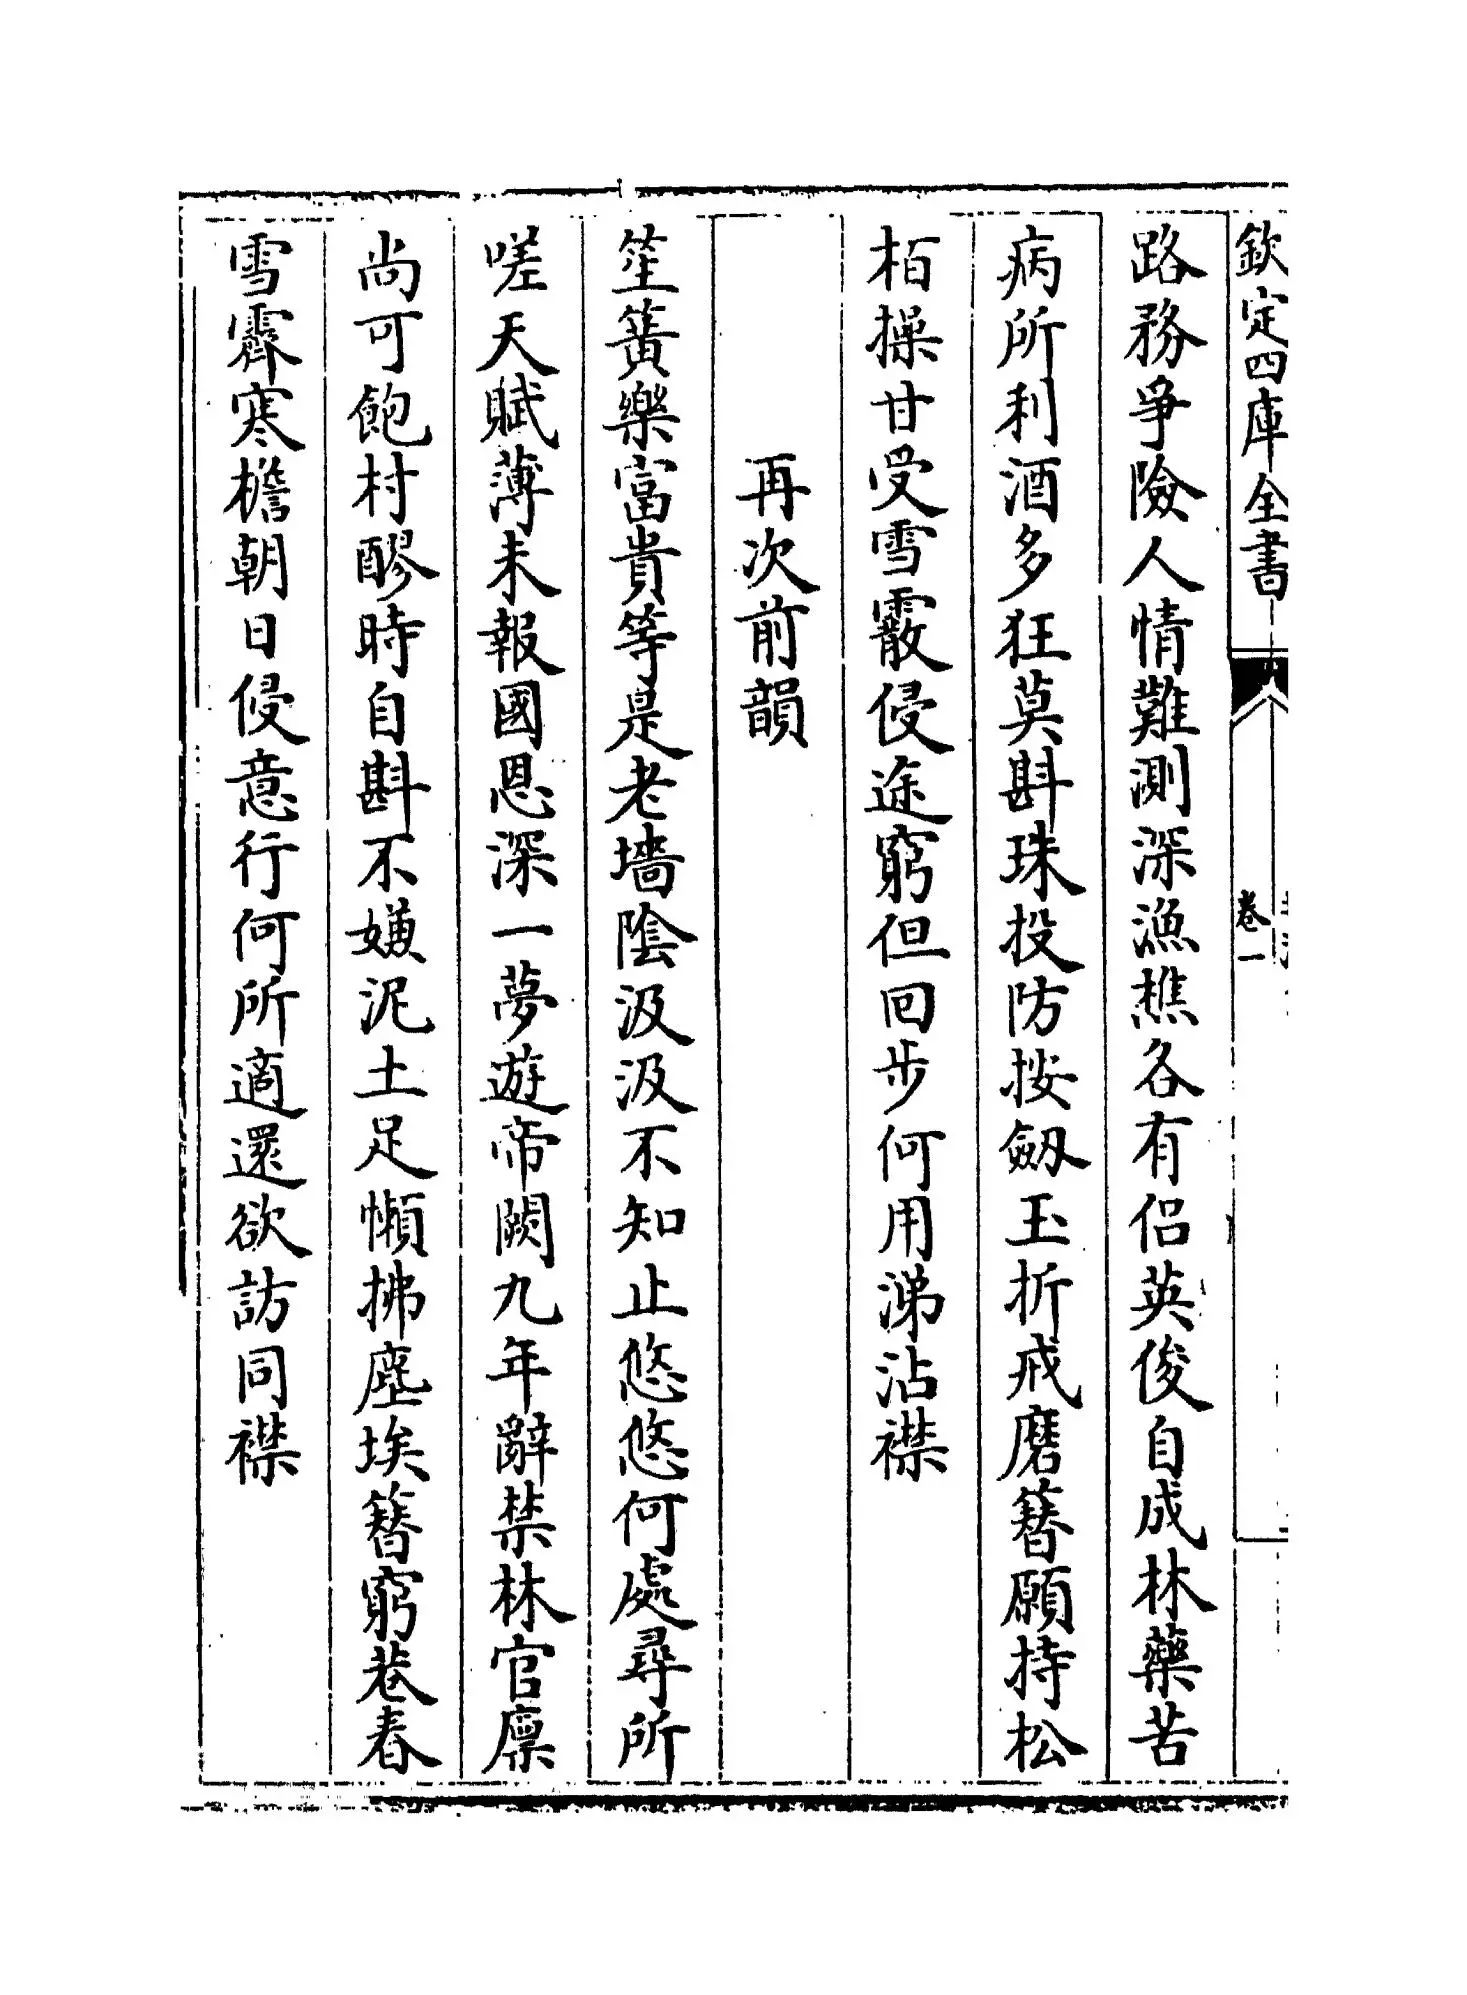 欽定四庫全書
卷一
路務爭險人情難測深漁樵各有侣英俊自成林藥苦
病所利酒多狂莫斟珠投防按劔玉折戒磨簪願持松
栢操甘受雪霰侵途窮但回步何用涕沾襟
再次前韻
笙簧樂富貴等是老墻陰汲汲不知止悠悠何處尋所
嗟天賦薄未報國恩深一夢遊帝闕九年辭禁林官廪
尚可飽村醪時自斟不嫌泥土足懶拂塵埃簪窮巷春
雪霽寒檐朝日侵意行何所適還欲訪同襟